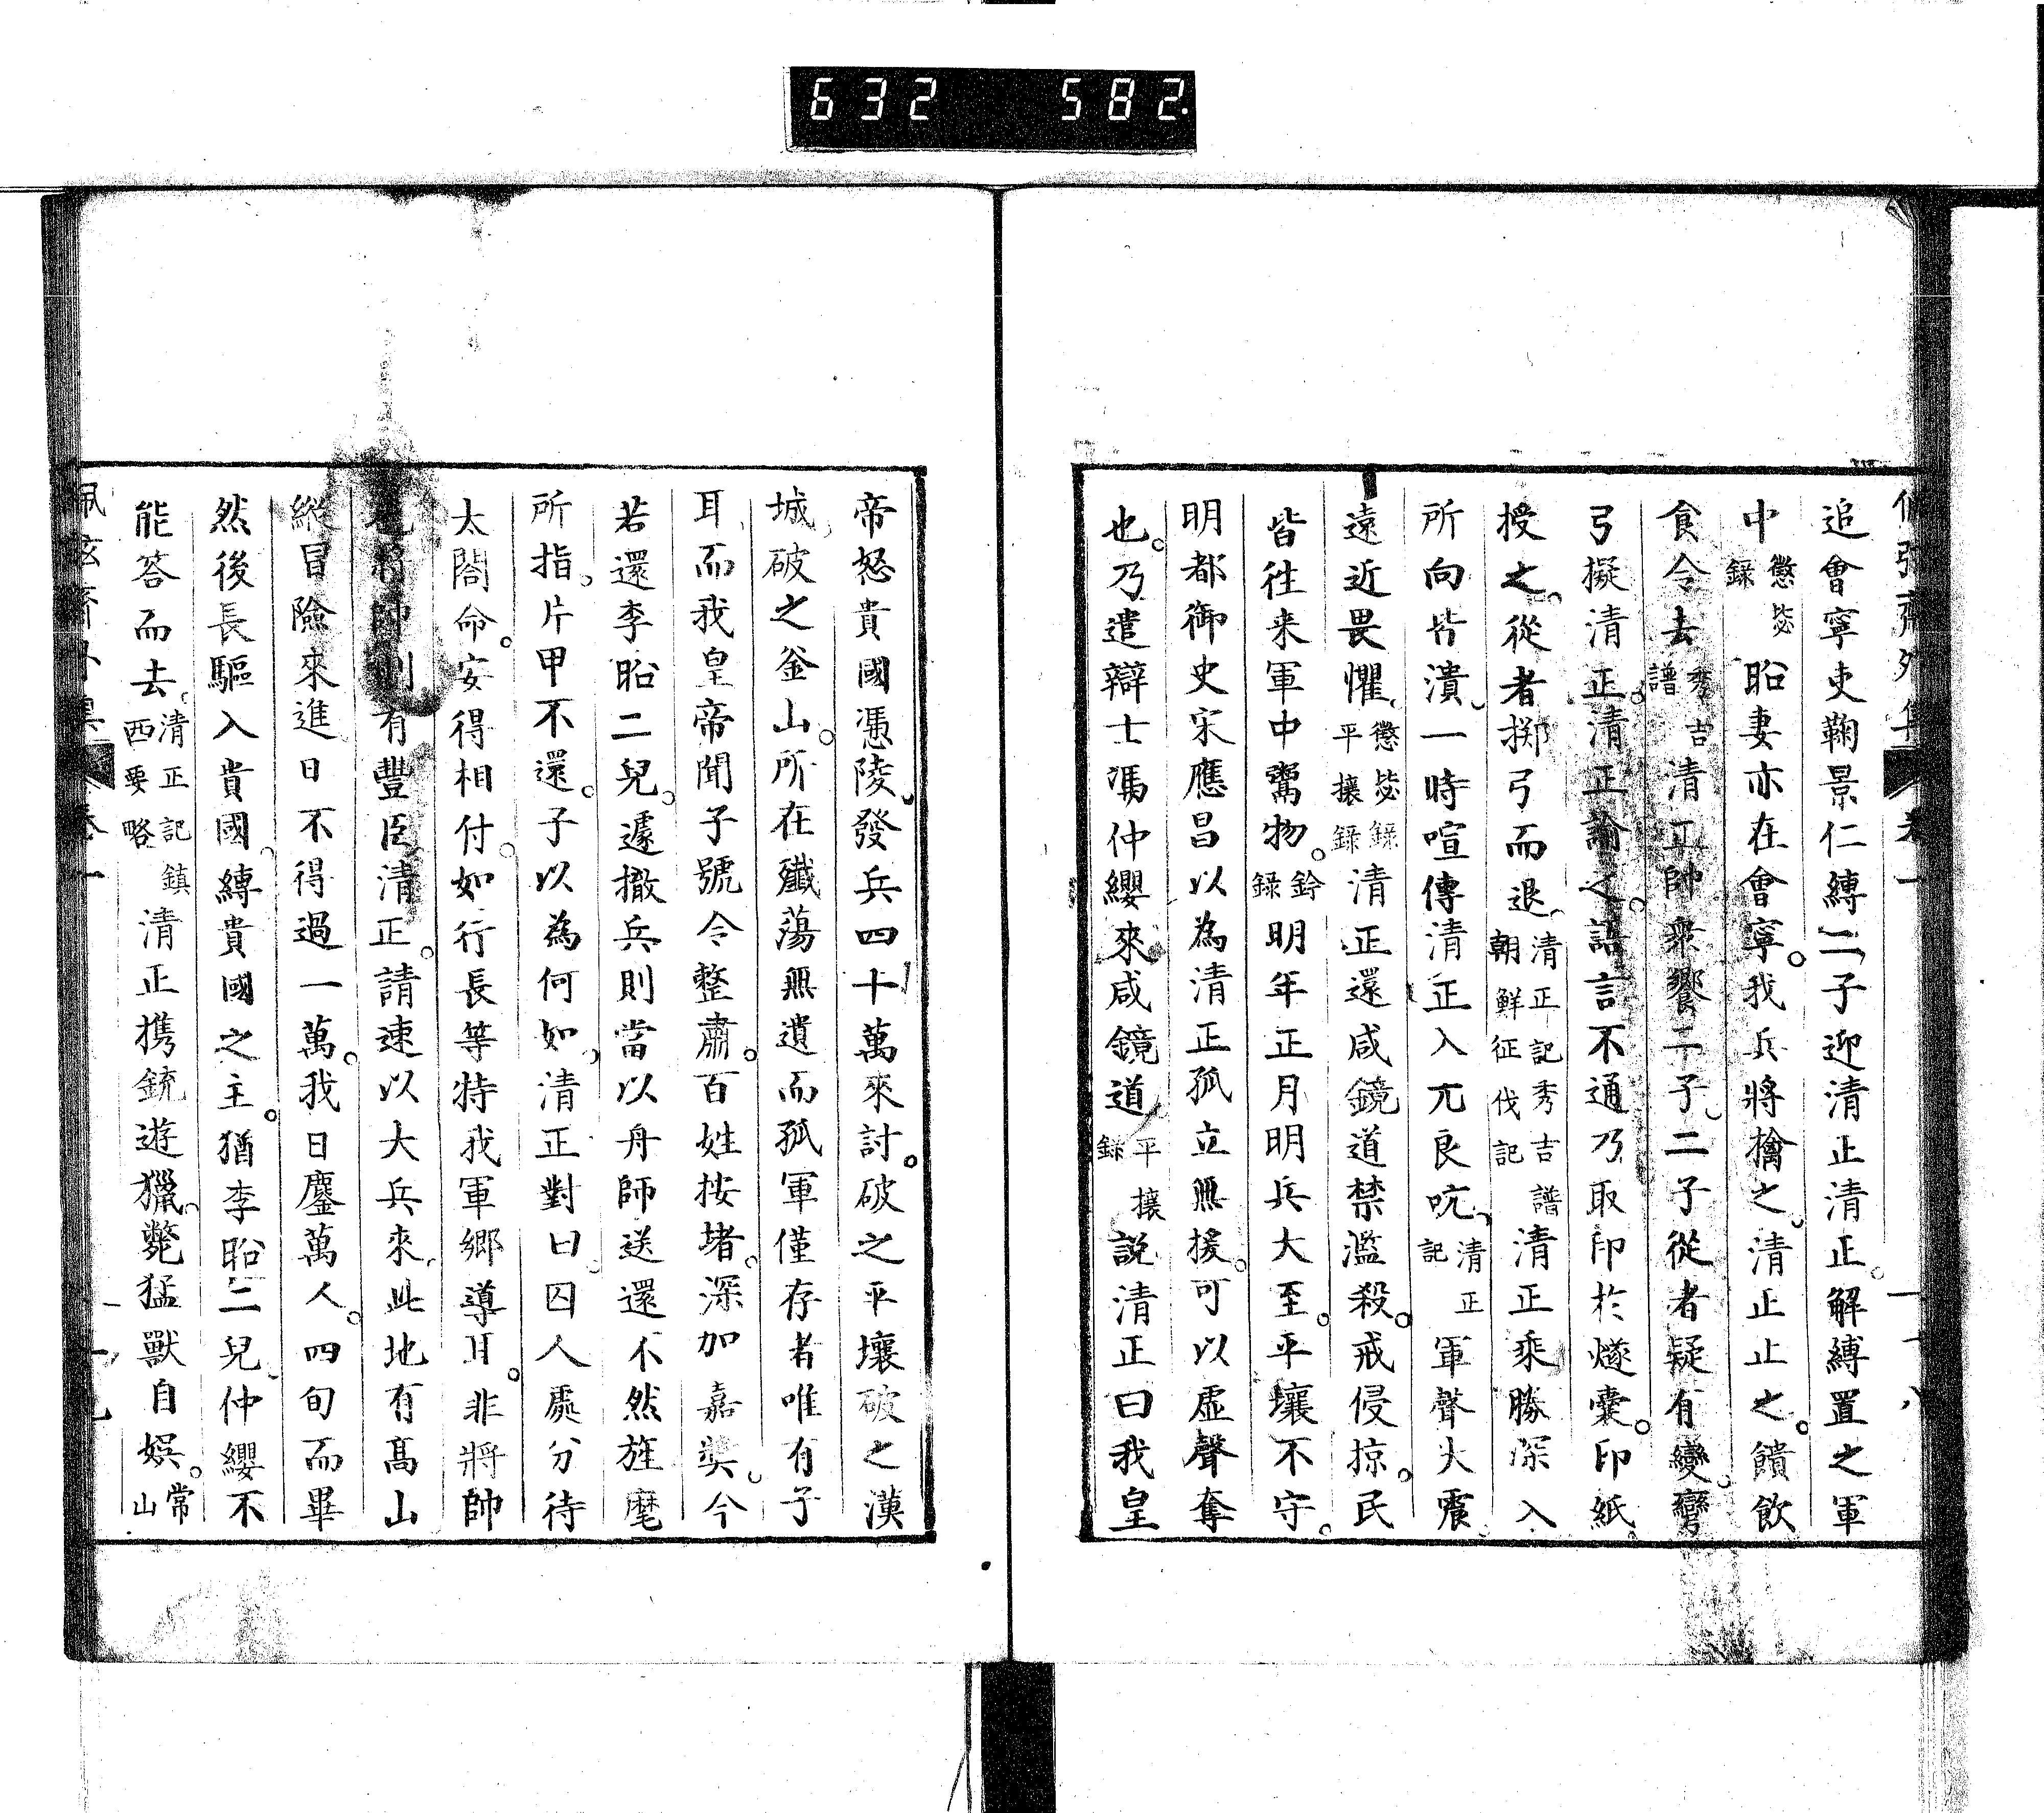 632 582.
追會寧吏鞠景仁縛二子迎清正清正解縛置之軍
中懲毖錄昭妻亦在會寧我兵將擒之清正止之饋飲
食令去秀吉譜清正帥衆饗二子二子從者疑有變彎
弓擬清正清正諭之語言不通乃取印於燧囊印紙
授之從者擲弓而退清正記秀吉譜朝鮮征伐記清正乘勝深入
所向皆潰一時喧傳清正入兀良哈清正記軍聲大震
遠近畏懼懲毖錄平攘錄清正還咸鏡道禁濫殺戒侵掠民
皆往来軍中鬻物錄明年正月明兵大至平壤不守
明都御史宋應昌以為清正孤立無援可以虛聲奪
也乃遣辯士馮仲纓來咸鏡道平攘錄說清正曰我皇
帝怒貴國憑陵發兵四十萬來討破之平壤破之漢
城破之釜山所在殲蕩無遺而孤軍僅存者唯有子
耳而我皇帝聞子號令整肅百姓按堵深加嘉奬今
若還李昭二兒遽撤兵則當以舟師送還不然旌麾
所指片甲不還子以為何如清正對曰囚人處分待
太閤命安得相付如行長等特我軍鄉導耳非將帥
也將帥則有豐臣清正請速以大兵來此地有高山
縱冒險來進日不得過一萬我日鏖萬人四旬而畢
然後長驅入貴國縛貴國之主猶李昭二兒仲纓不
能答而去清正記鎮西要略清正携銃遊獵斃猛獸自娯常山